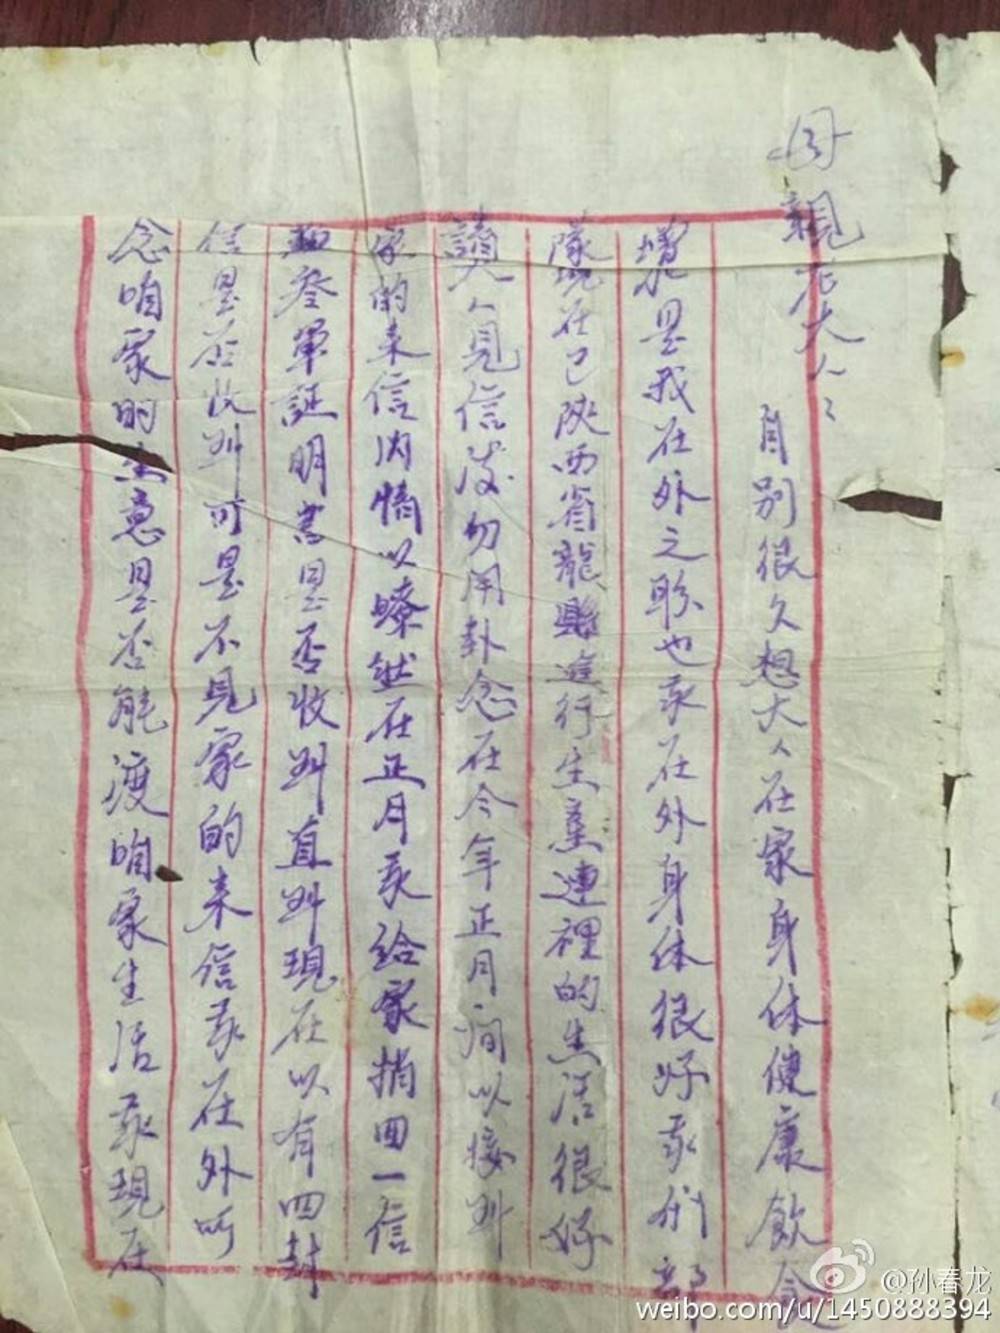 母親老大人:
自別很久想大人在家身体健康飲食
增加是我在外之盼也我在外身体很好我们部
隊現在已陝西省龍縣進行生産連裡的生活很好
讀人人見信後勿用卦念在今年正月间以接到
家的来信内情以瞭然在正月我给家捎回一信
並叁軍証明書是否收到直到現在以有四封
信是否收到可是不見家的来信我在外所
念咱家的生意是否能渡咱家生活我現在
@孙春龙
weibo.com/u/1450888394